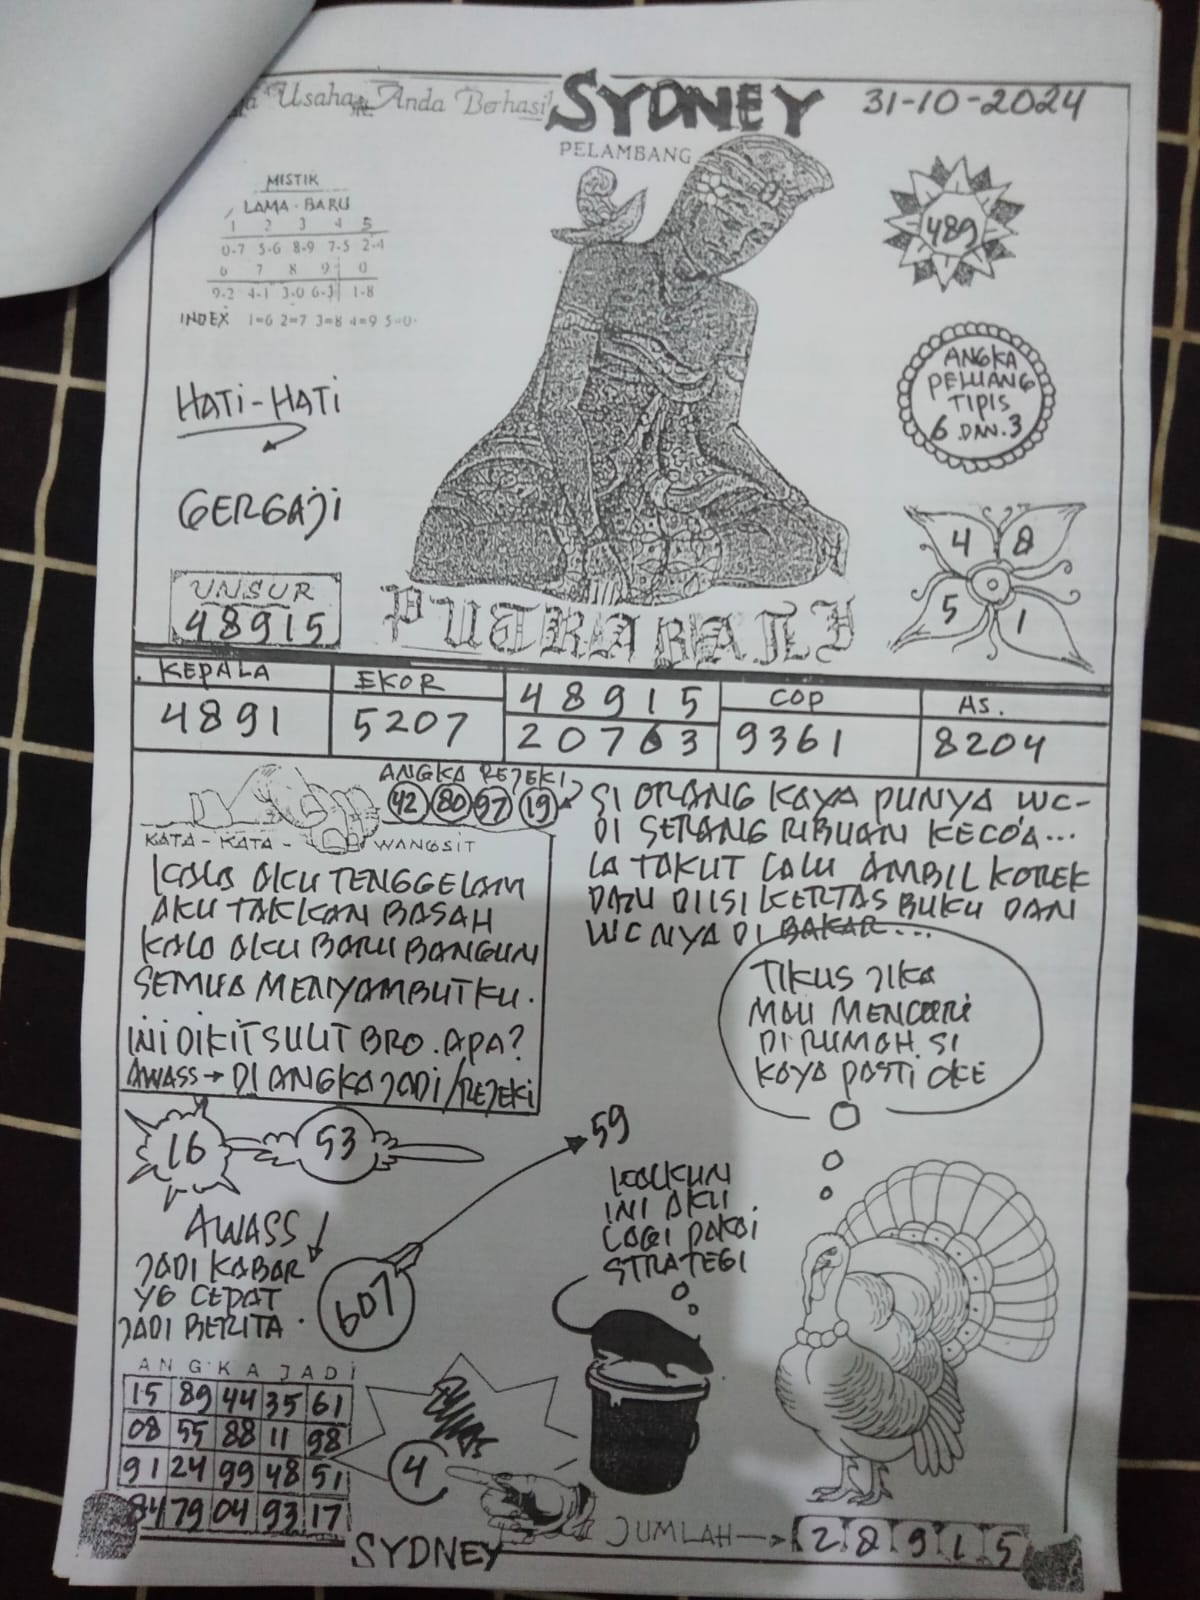 Usaha Anda Berhasil
SYDNEY
31-10-2024
PELAMBANG
MISTIK
LAMA - BARU
1 2 3 4 5
0-7 5-6 8-9 7-5 2-4
6 7 8 9 0
9-2 4-1 3-0 6-3 1-8
INDEX 1=6 2=7 3=8 4=9 5=0
489
HATI-HATI
ANGKA
PELUANG
TIPIS
6 DAN 3
GERGAJI
4 8
5 1
UNSUR
48915
PUTRA BALI
KEPALA
4891
EKOR
5207
48915
20763
COP
9361
AS.
8204
ANGKA REJEKI
42 80 97 19
KATA - KATA - WANGSIT
KALO AKU TENGGELAM
AKU TAKKAN BASAH
KALO AKU BARU BANGUN
SEMUA MENYAMBUTKU.
INI DIKIT SULIT BRO. APA?
AWASS → DI ANGKA JADI/REJEKI
SI ORANG KAYA PUNYA WC-
DI SERANG RIBUAN KECOA...
LA TAKUT LALU AMBIL KOREK
DAN DIISI KERTAS BUKU DAN
WCNYA DI BAKAR...
TIKUS JIKA
MAU MENCARI
DI RUMAH SI
KAYA PASTI OKE
16 53
59
AWASS
JADI KABAR
YG CEPAT
JADI BERITA.
607
KALKUN
INI AKU
LAGI PAKAI
STRATEGI
ANGKA JADI
15 89 44 35 61
08 55 88 11 98
91 24 99 48 51
84 79 04 93 17
4
SYDNEY
JUMLAH → 28915